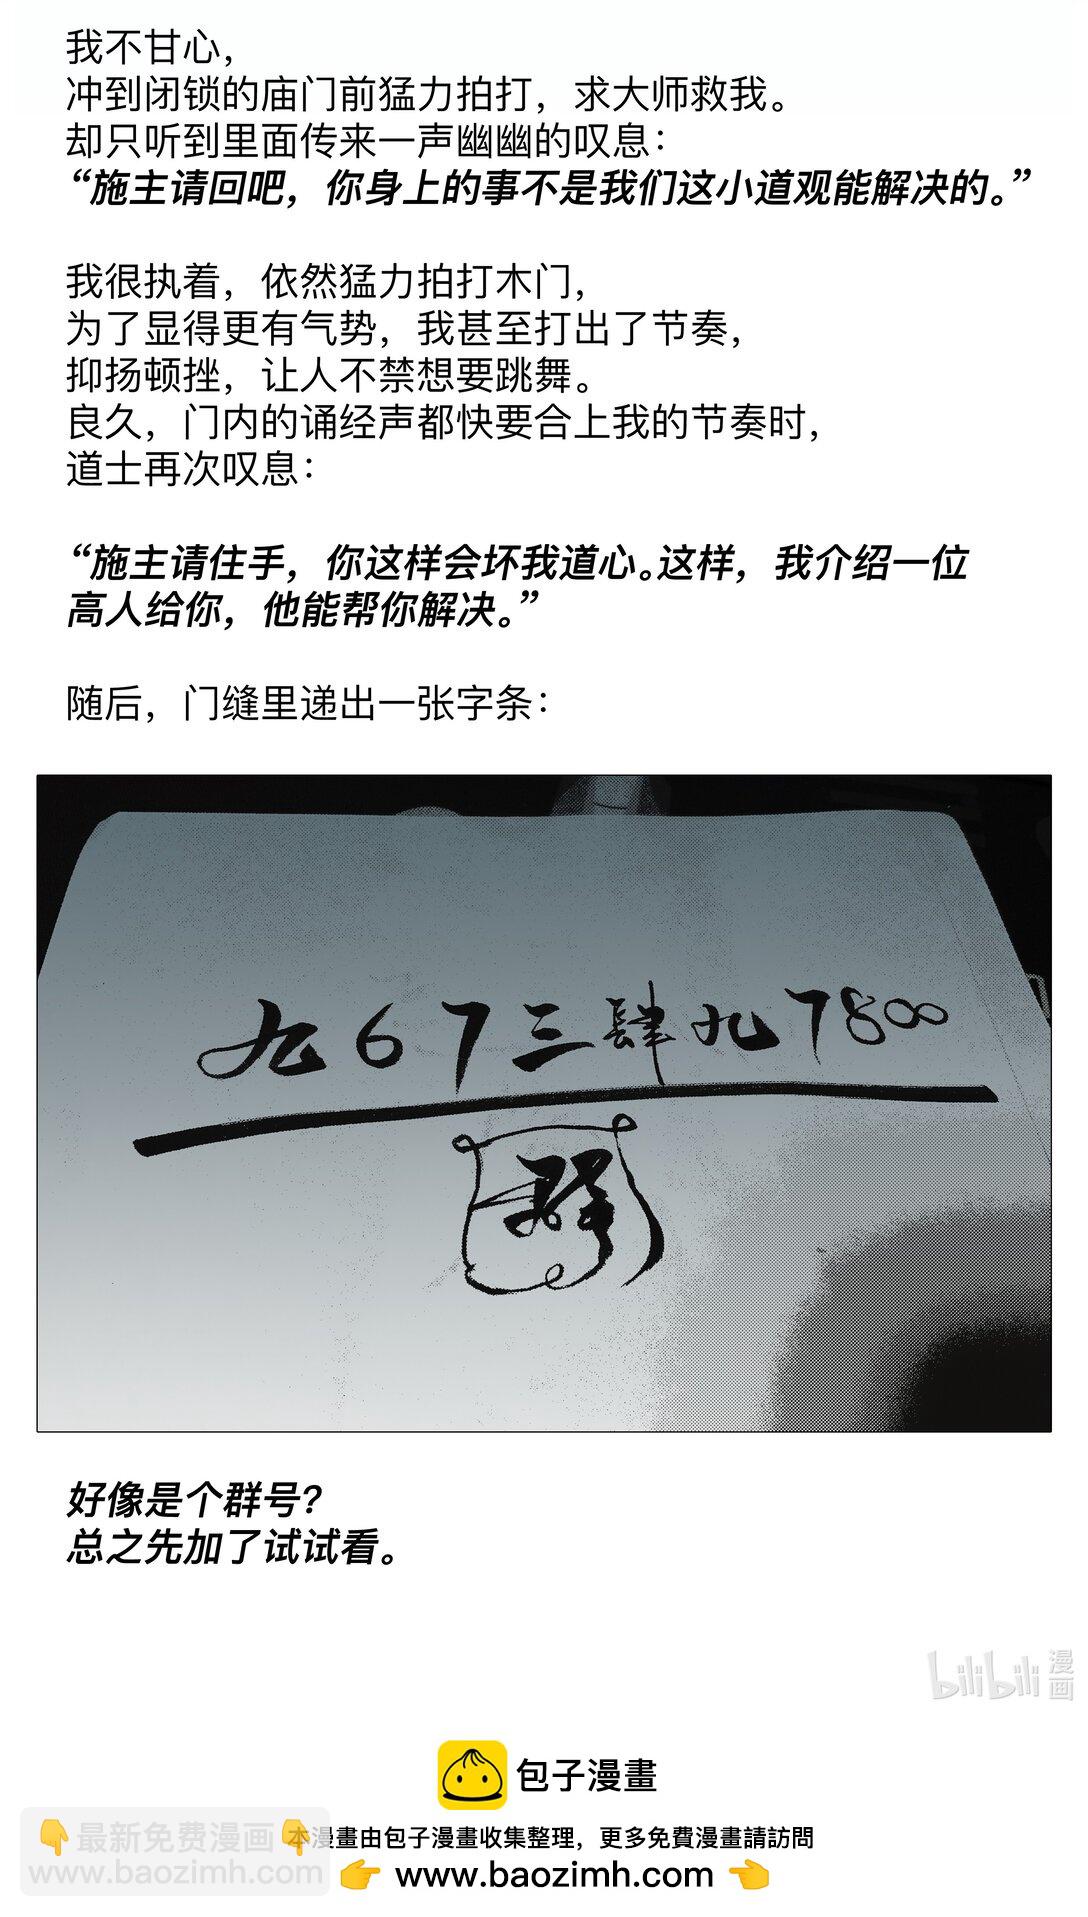 我不甘心，
冲到闭锁的庙门前猛力拍打，求大师救我。
却只听到里面传来一声幽幽的叹息：
“施主请回吧，你身上的事不是我们这小道观能解决的。”
我很执着，依然猛力拍打木门，
为了显得更有气势，我甚至打出了节奏，
抑扬顿挫，让人不禁想要跳舞。
良久，门内的诵经声都快要合上我的节奏时，
道士再次叹息：
“施主请住手，你这样会坏我道心。这样，我介绍一位
高人给你，他能帮你解决。”
随后，门缝里递出一张字条：
九67三肆九7800
群
好像是个群号？
总之先加了试试看。
bilibili 漫画
包子漫畫
👇最新免费漫画👇
www.baozimh.com
本漫畫由包子漫畫收集整理，更多免費漫畫請訪問
👉 www.baozimh.com 👈